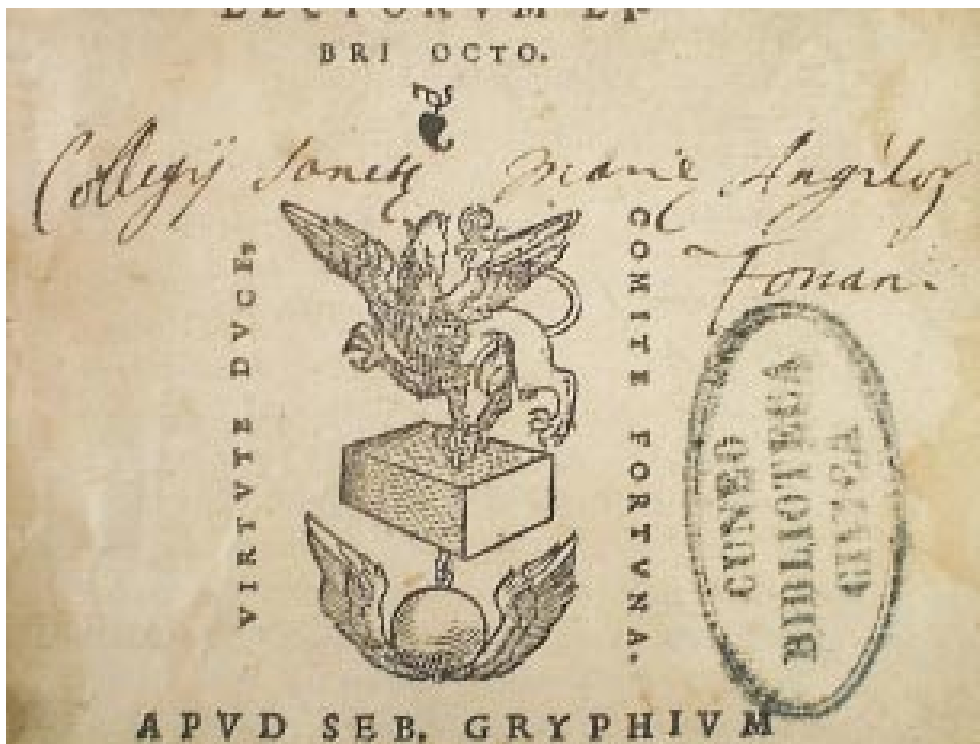 LECTORVM LI-
BRI OCTO.
Collegij Sancte Marie Angelor
VIRTVTE DVCE,
COMITE FORTVNA.
CUNEO
BIBLIOTECA
CIVICA
APVD SEB. GRYPHIVM